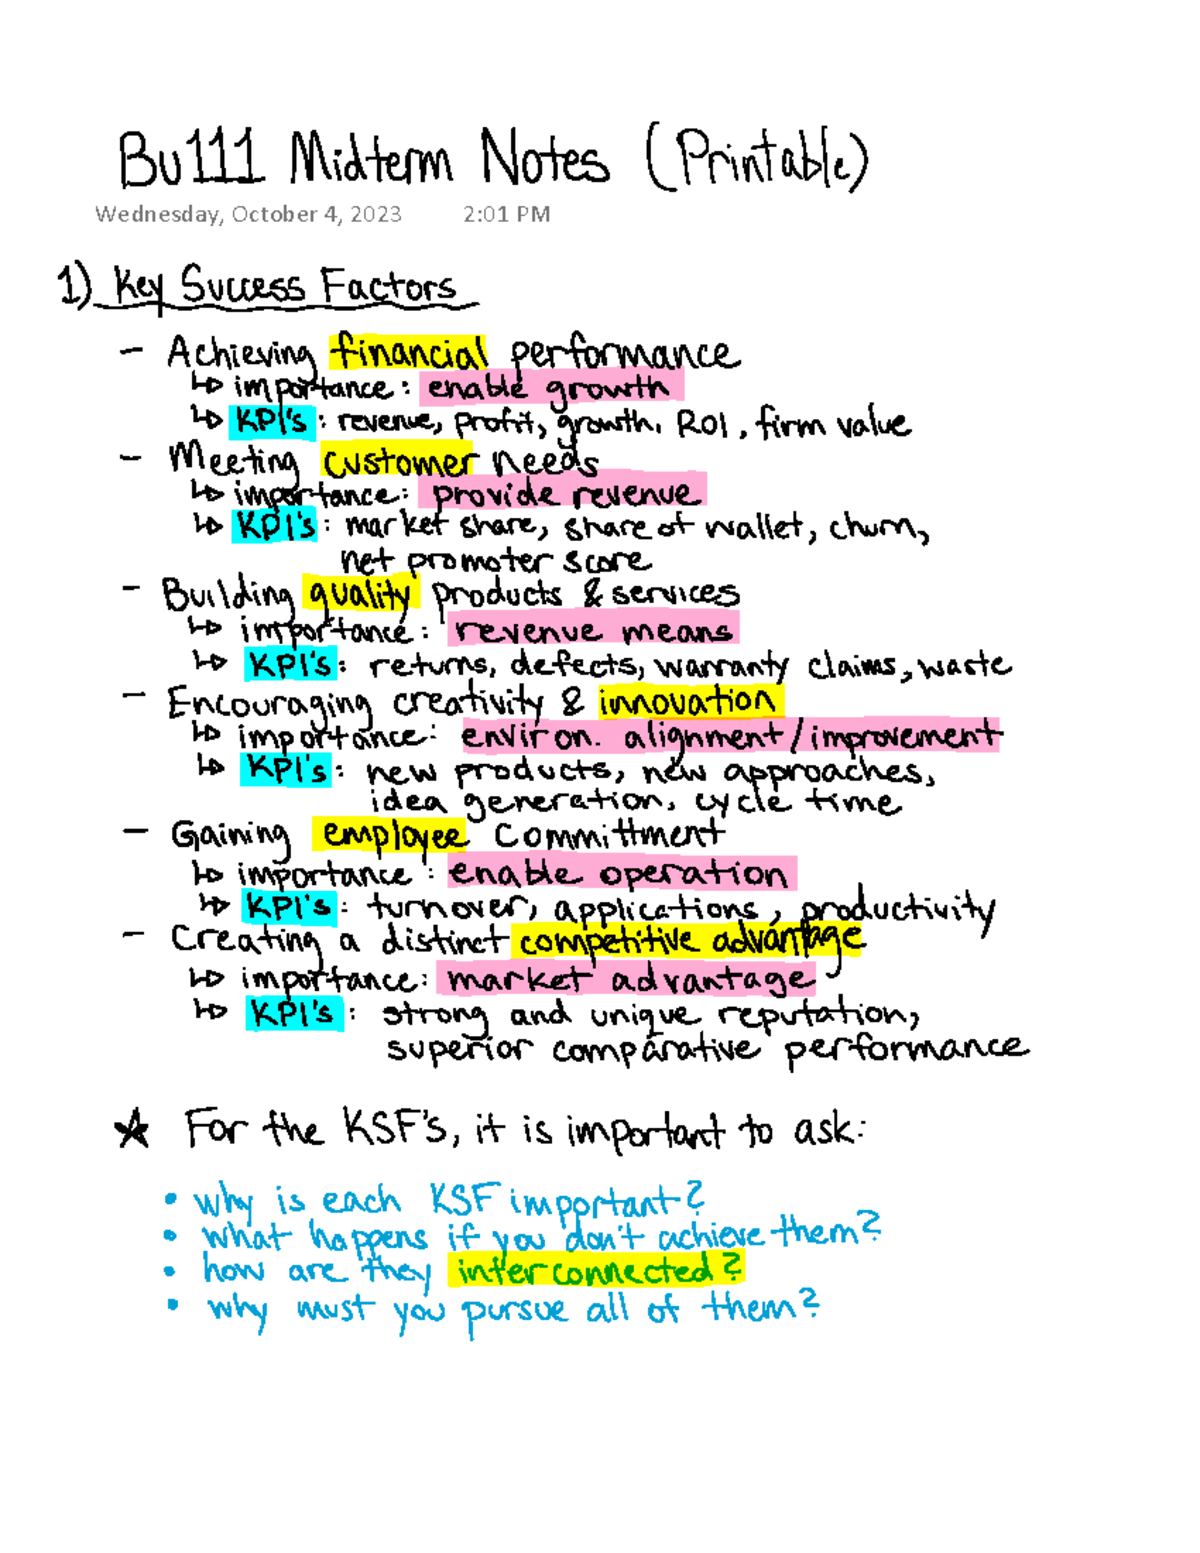 Bu111 Midterm Notes (Printable)
Wednesday, October 4, 2023 2:01 PM
1) Key Success Factors
- Achieving financial performance
↳ importance: enable growth
↳ KPI's: revenue, profit, growth, ROI, firm value
- Meeting customer needs
↳ importance: provide revenue
↳ KPI's: market share, share of wallet, churn,
net promoter score
- Building quality products & services
↳ importance: revenue means
↳ KPI's: returns, defects, warranty claims, waste
- Encouraging creativity & innovation
↳ importance: environ. alignment/improvement
↳ KPI's: new products, new approaches,
idea generation, cycle time
- Gaining employee committment
↳ importance: enable operation
↳ KPI's: turnover, applications, productivity
- Creating a distinct competitive advantage
↳ importance: market advantage
↳ KPI's: strong and unique reputation,
superior comparative performance
★ For the KSF's, it is important to ask:
• why is each KSF important?
• what happens if you don't achieve them?
• how are they interconnected?
• why must you pursue all of them?